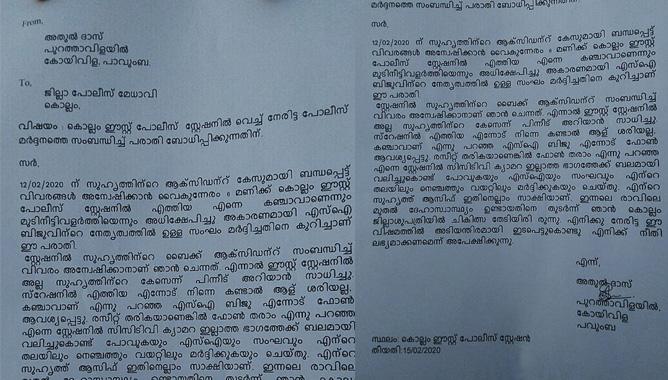 From,
അതുൽ ദാസ്
പുറത്താവിളയിൽ
കോയിവിള, പാവുംബ.
To,
ജില്ലാ പോലീസ് മേധാവി
കൊല്ലം,
വിഷയം : കൊല്ലം ഈസ്റ്റ് പോലീസ് സ്റ്റേഷനിൽ വെച്ച് നേരിട്ട പോലീസ്
മർദ്ദനത്തെ സംബന്ധിച്ച് പരാതി ബോധിപ്പിക്കുന്നതിന്.
സർ,
12/02/2020 ന് സുഹൃത്തിൻറെ ആക്സിഡൻറ് കേസുമായി ബന്ധപ്പെട്ട്
വിവരങ്ങൾ അന്വേഷിക്കാൻ വൈകുന്നേരം 6 മണിക്ക് കൊല്ലം ഈസ്റ്റ്
പോലീസ് സ്റ്റേഷനിൽ എത്തിയ എന്നെ കഞ്ചാവാണെന്നും
മുടിനീട്ടിവളർത്തിയെന്നും അധിക്ഷേപിച്ചു അകാരണമായി എസ്ഐ
ബിജുവിൻറെ നേതൃത്വത്തിൽ ഉള്ള സംഘം മർദ്ദിച്ചതിൻറെ കുറിച്ചാണ്
ഈ പരാതി.
സ്റ്റേഷനിൽ സുഹൃത്തിൻറെ ബൈക്ക് ആക്സിഡൻറ് സംബന്ധിച്ച്
വിവരം അന്വേഷിക്കാനാണ് ഞാൻ ചെന്നത് എന്നാൽ ഈസ്റ്റ് സ്റ്റേഷനിൽ
അല്ല സുഹൃത്തിൻറെ കേസെന്ന് പിന്നീട് അറിയാൻ സാധിച്ചു.
സ്റേഷനിൽ എത്തിയ എന്നോട് നിന്നെ കണ്ടാൽ ആള് ശരിയല്ല,
കഞ്ചാവാണ് എന്നു പറഞ്ഞ എസ്ഐ ബിജു എന്നോട് ഫോൺ
ആവശ്യപ്പെട്ടു. രസീറ്റ് തരികയാണെങ്കിൽ ഫോൺ തരാം എന്നു പറഞ്ഞ
എന്നെ സ്റ്റേഷനിൽ സിസിടിവി ക്യാമറ ഇല്ലാത്ത ഭാഗത്തേക്ക് ബലമായി
വലിച്ചുകൊണ്ട് പോവുകയും എസ്ഐയും സംഘവും എൻറെ
തലയിലും നെഞ്ചത്തും വയറ്റിലും മർദ്ദിക്കുകയും ചെയ്തു. എൻറെ
സുഹൃത്ത് ആസിഫ് ഇതിനെല്ലാം സാക്ഷിയാണ്. ഇന്നലെ രാവിലെ
മർദ്ദനത്തെ സംബന്ധിച്ച് പരാതി ബോധിപ്പിക്കുന്നതിന്.
സർ,
12/02/2020 ന് സുഹൃത്തിൻറെ ആക്സിഡൻറ് കേസുമായി ബന്ധപ്പെട്ട്
വിവരങ്ങൾ അന്വേഷിക്കാൻ വൈകുന്നേരം 6 മണിക്ക് കൊല്ലം ഈസ്റ്റ്
പോലീസ് സ്റ്റേഷനിൽ എത്തിയ എന്നെ കഞ്ചാവാണെന്നും
മുടിനീട്ടിവളർത്തിയെന്നും അധിക്ഷേപിച്ചു അകാരണമായി എസ്ഐ
ബിജുവിൻറെ നേതൃത്വത്തിൽ ഉള്ള സംഘം മർദ്ദിച്ചതിൻറെ കുറിച്ചാണ്
ഈ പരാതി
സ്റ്റേഷനിൽ സുഹൃത്തിൻറെ ബൈക്ക് ആക്സിഡൻറ് സംബന്ധിച്ച്
വിവരം അന്വേഷിക്കാനാണ് ഞാൻ ചെന്നത് എന്നാൽ ഈസ്റ്റ് സ്റ്റേഷനിൽ
അല്ല സുഹൃത്തിൻറെ കേസെന്ന് പിന്നീട് അറിയാൻ സാധിച്ചു.
സ്റേഷനിൽ എത്തിയ എന്നോട് നിന്നെ കണ്ടാൽ ആള് ശരിയല്ല,
കഞ്ചാവാണ് എന്നു പറഞ്ഞ എസ്ഐ ബിജു എന്നോട് ഫോൺ
ആവശ്യപ്പെട്ടു. രസീറ്റ് തരികയാണെങ്കിൽ ഫോൺ തരാം എന്നു പറഞ്ഞ
എന്നെ സ്റ്റേഷനിൽ സിസിടിവി ക്യാമറ ഇല്ലാത്ത ഭാഗത്തേക്ക് ബലമായി
വലിച്ചുകൊണ്ട് പോവുകയും എസ്ഐയും സംഘവും എൻറെ
തലയിലും നെഞ്ചത്തും വയറ്റിലും മർദ്ദിക്കുകയും ചെയ്തു. എൻറെ
സുഹൃത്ത് ആസിഫ് ഇതിനെല്ലാം സാക്ഷിയാണ്. ഇന്നലെ രാവിലെ
മുതൽ ദേഹാസ്വാസ്ഥ്യം ഉണ്ടായതിനെ തുടർന്ന് ഞാൻ കൊല്ലം
ജില്ലാശുപത്രിയിൽ ചികിത്സ തേടിയിരി രുന്നു. എനിക്കു നേരിട്ട ഈ
വിഷമത്തിൽ അടിയന്തരമായി ഇടപെട്ടുകൊണ്ടു എനിക്ക് നീതി
ലഭ്യമാക്കണമെന്ന് അപേക്ഷിക്കുന്നു.
എന്ന്,
അതുൽദാസ്
പുറത്താവിളയിൽ,
കോയിവിള
പവുംബ
സ്ഥലം: കൊല്ലം ഈസ്റ്റ് പോലീസ് സ്റ്റേഷൻ
തീയതി:15/02/2020